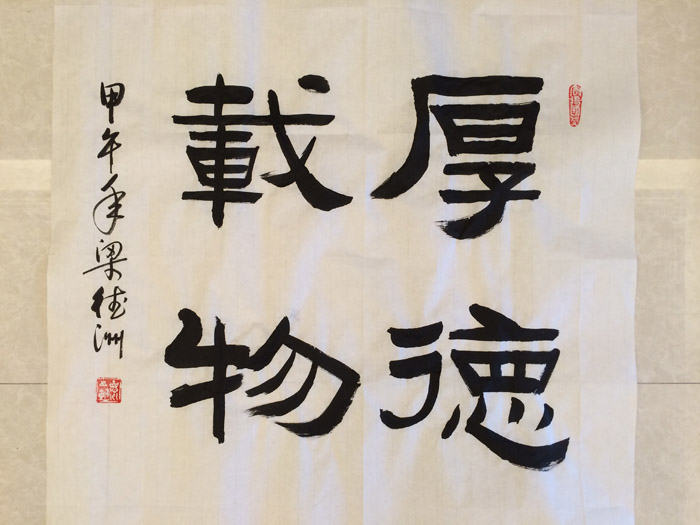 厚德
載物
甲午年梁德洲